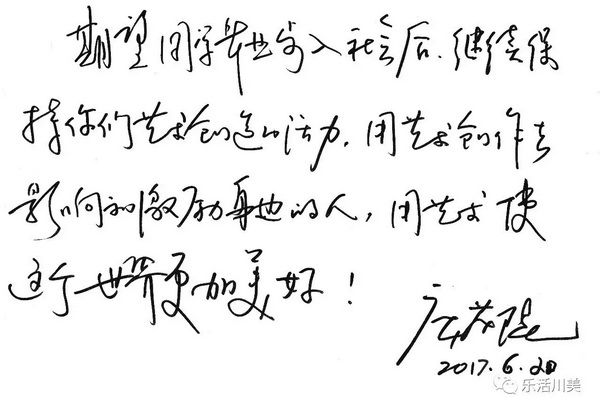 期望同学毕业步入社会后,继续保
持你们艺术创造的活力,用艺术创作去
影响和激励身边的人,用艺术使
这个世界更加美好!
庞茂琨
2017.6.20
乐活川美